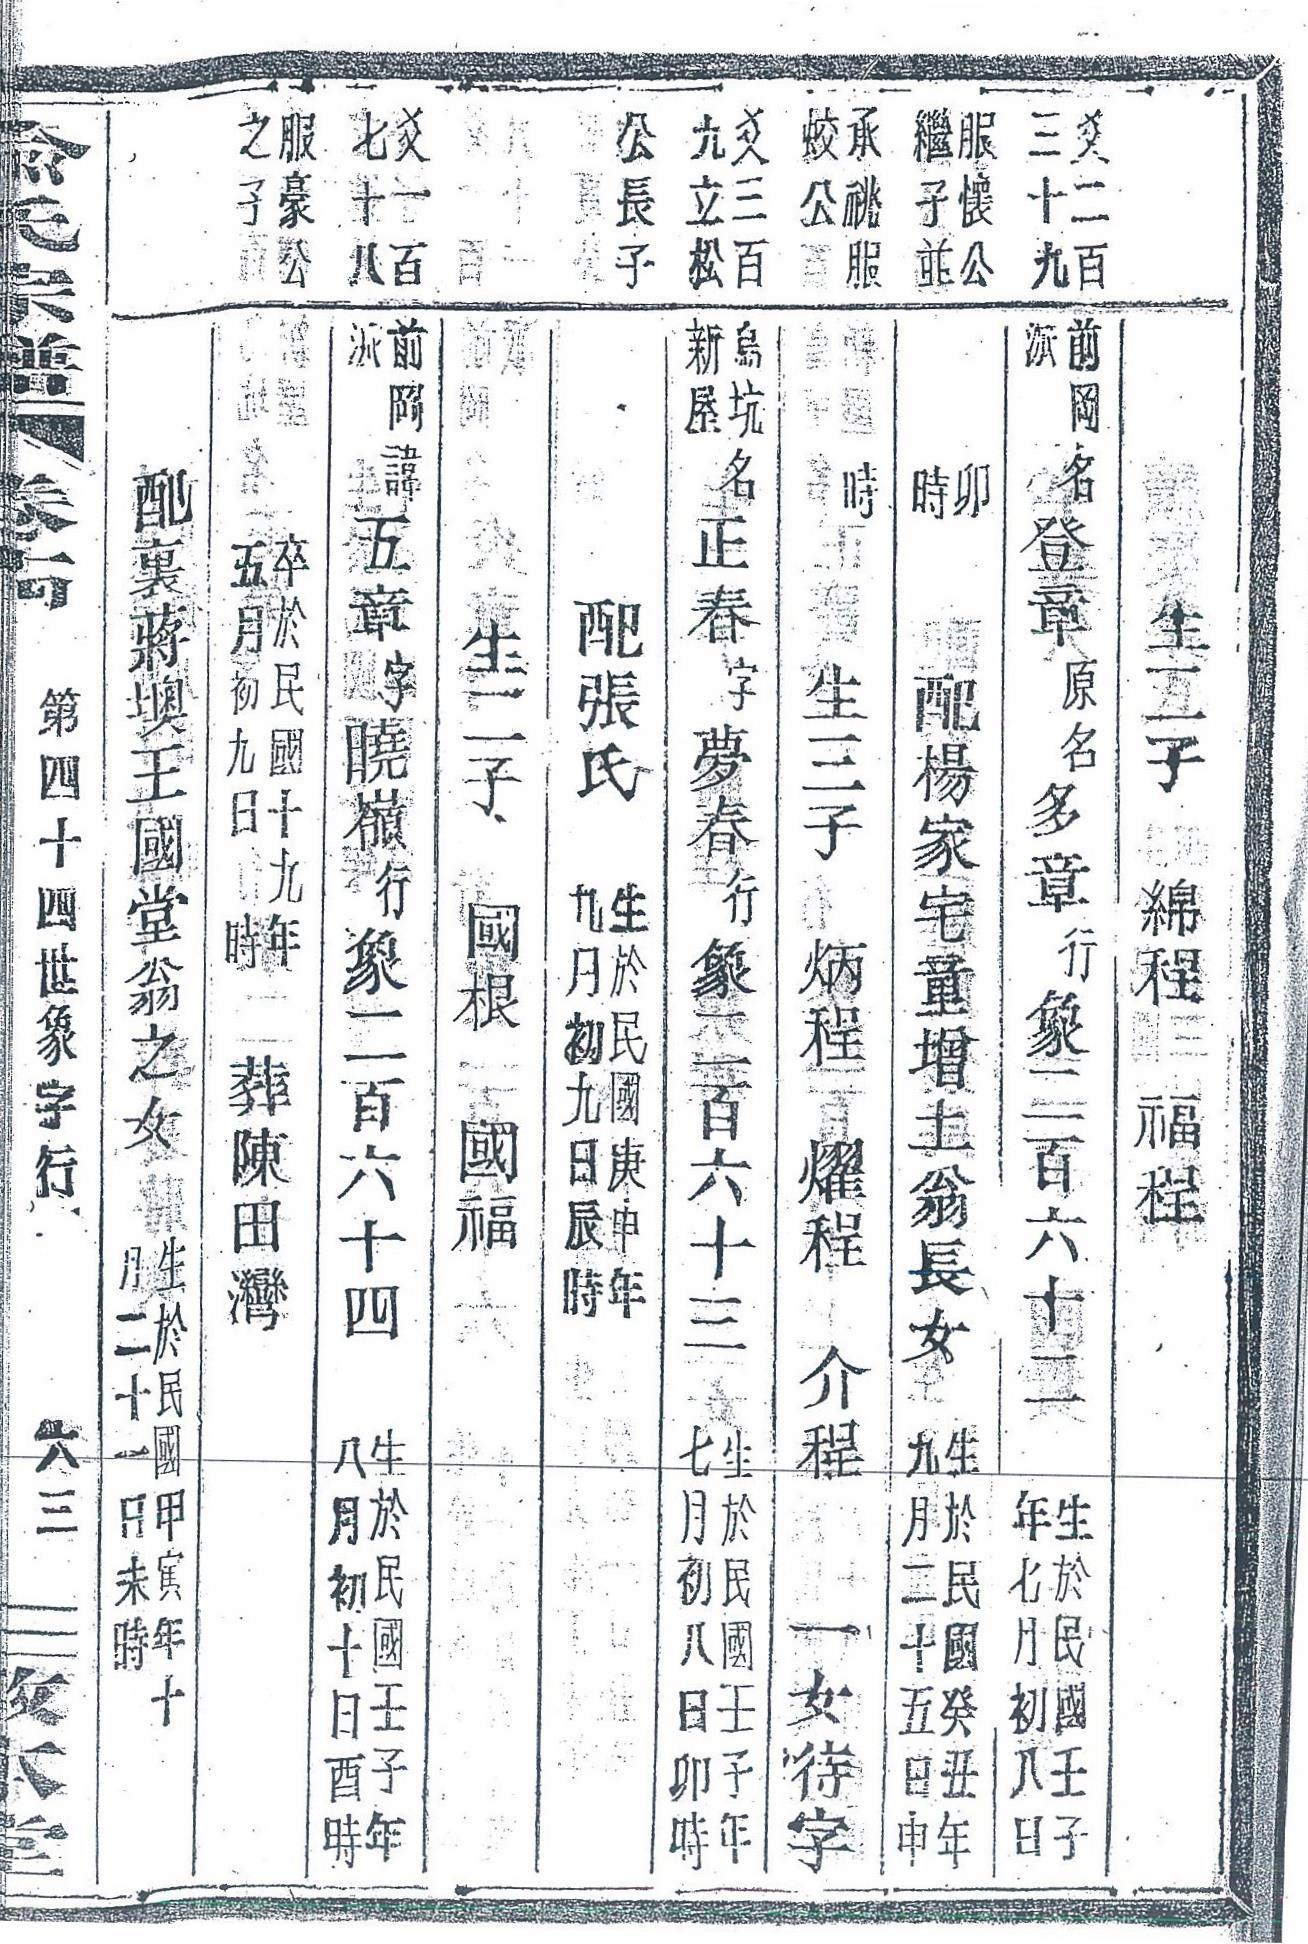 生二子 綿程 福程
爻二百三十九
前岡派名登章原名多章行象二百六十二 生於民國壬子年七月初八日卯時
服懷公繼子並承祧服蛟公
配楊家宅童增土翁長女 生於民國癸丑年九月二十五日申時
生三子 炳程 燿程 介程 一女待字
爻三百九立松公長子
烏坑新屋名正春字夢春行象二百六十三 生於民國壬子年七月初八日卯時
配張氏 生於民國庚申年九月初九日辰時
生二子 國根 國福
爻一百七十八服豪公之子
前岡派諱五章字曉嶺行象二百六十四 生於民國壬子年八月初十日酉時
卒於民國十九年五月初九日 時 葬陳田灣
配裏蔣墺王國堂翁之女 生於民國甲寅年十月二十一日未時
俞氏宗譜 第四十四世象字行 六三